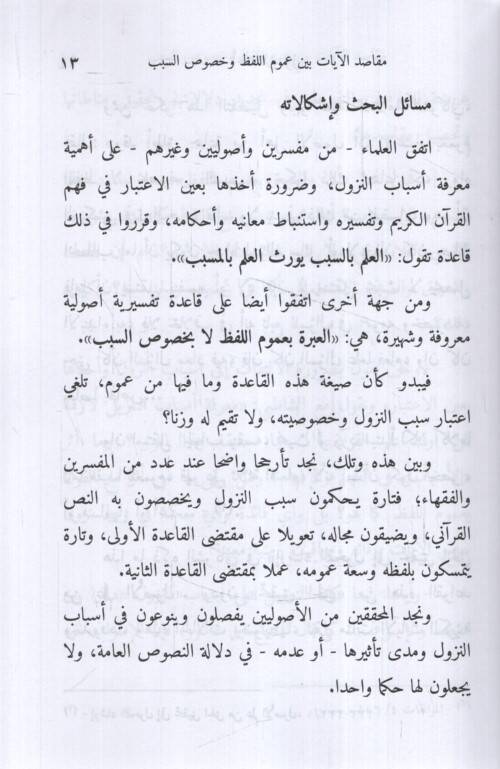 مقاصد الآيات بين عموم اللفظ وخصوص السبب ١٣
مسائل البحث وإشكالاته
اتفق العلماء - من مفسرين وأصوليين وغيرهم - على أهمية
معرفة أسباب النزول، وضرورة أخذها بعين الاعتبار في فهم
القرآن الكريم وتفسيره واستنباط معانيه وأحكامه، وقرروا في ذلك
قاعدة تقول: «العلم بالسبب يورث العلم بالمسبب».
ومن جهة أخرى اتفقوا أيضا على قاعدة تفسيرية أصولية
معروفة وشهيرة، هي: «العبرة بعموم اللفظ لا بخصوص السبب».
فيبدو كأن صيغة هذه القاعدة وما فيها من عموم، تلغي
اعتبار سبب النزول وخصوصيته، ولا تقيم له وزنا؟
وبين هذه وتلك، نجد تأرجحا واضحا عند عدد من المفسرين
والفقهاء؛ فتارة يحكمون سبب النزول ويخصصون به النص
القرآني، ويضيقون مجاله، تعويلا على مقتضى القاعدة الأولى، وتارة
يتمسكون بلفظه وسعة عمومه، عملا بمقتضى القاعدة الثانية.
ونجد المحققين من الأصوليين يفصلون وينوعون في أسباب
النزول ومدى تأثيرها - أو عدمه - في دلالة النصوص العامة، ولا
يجعلون لها حكما واحدا.